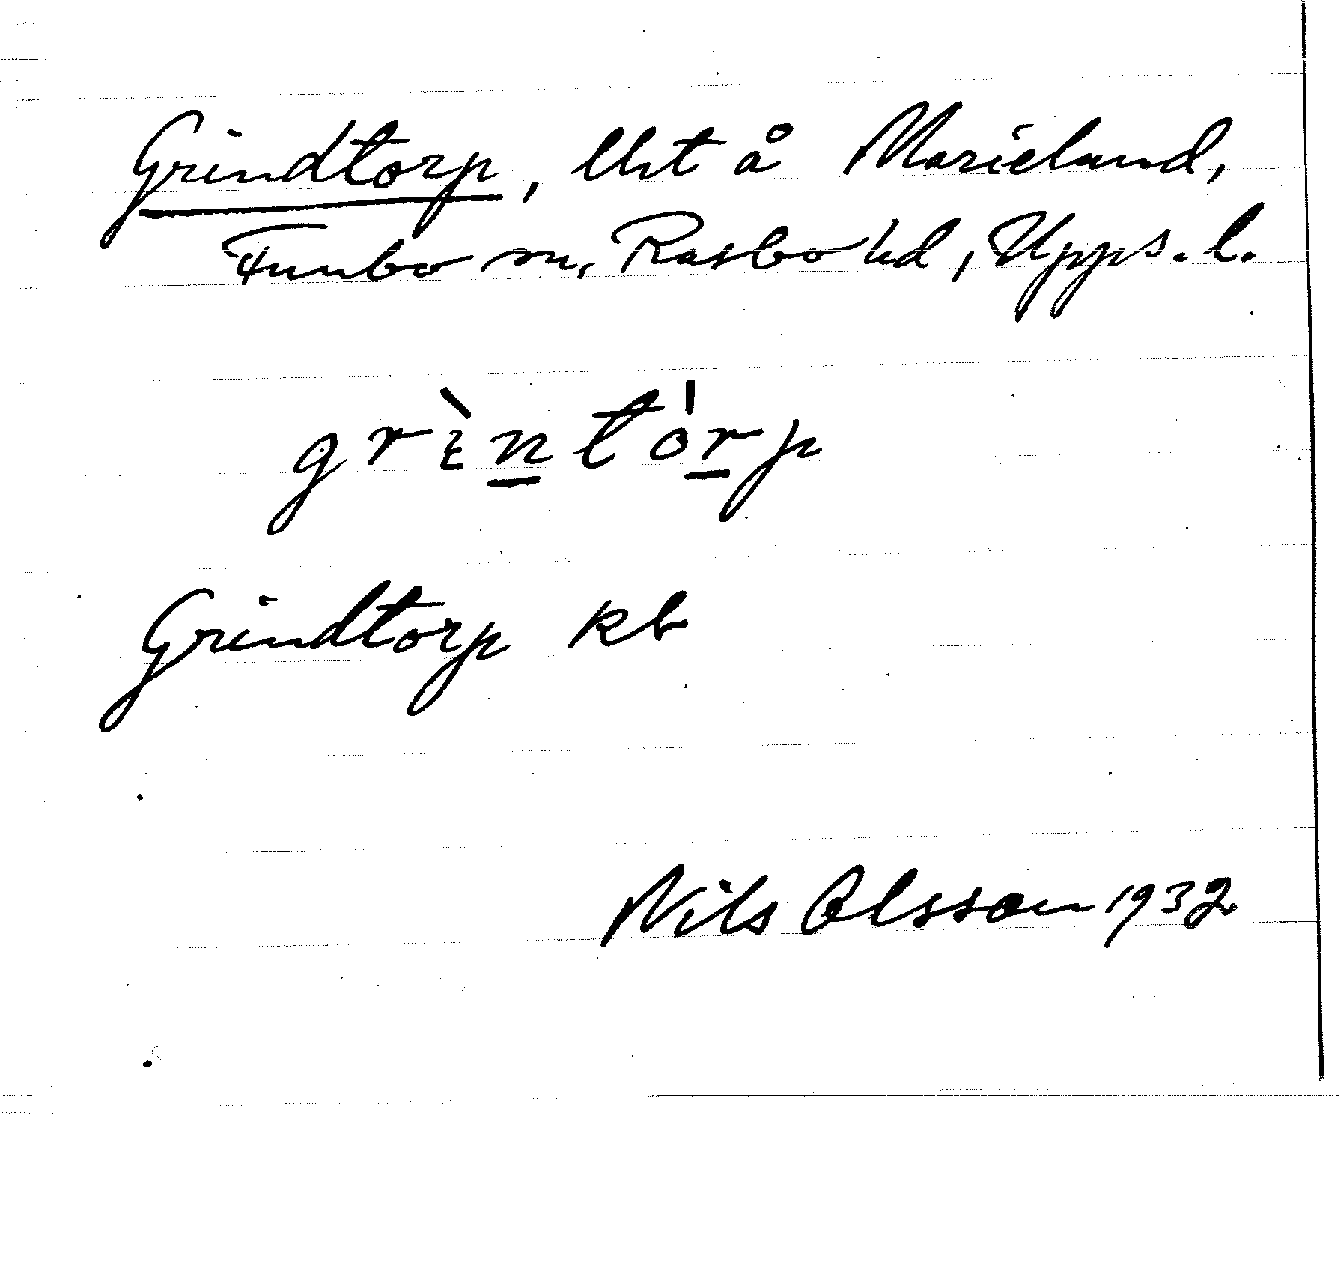 Grindtorp, lht å Marieland,
Funbo sn, Rasbo hd, Upps. l.
grìntórp
Grindtorp kb
Nils Olsson 1932